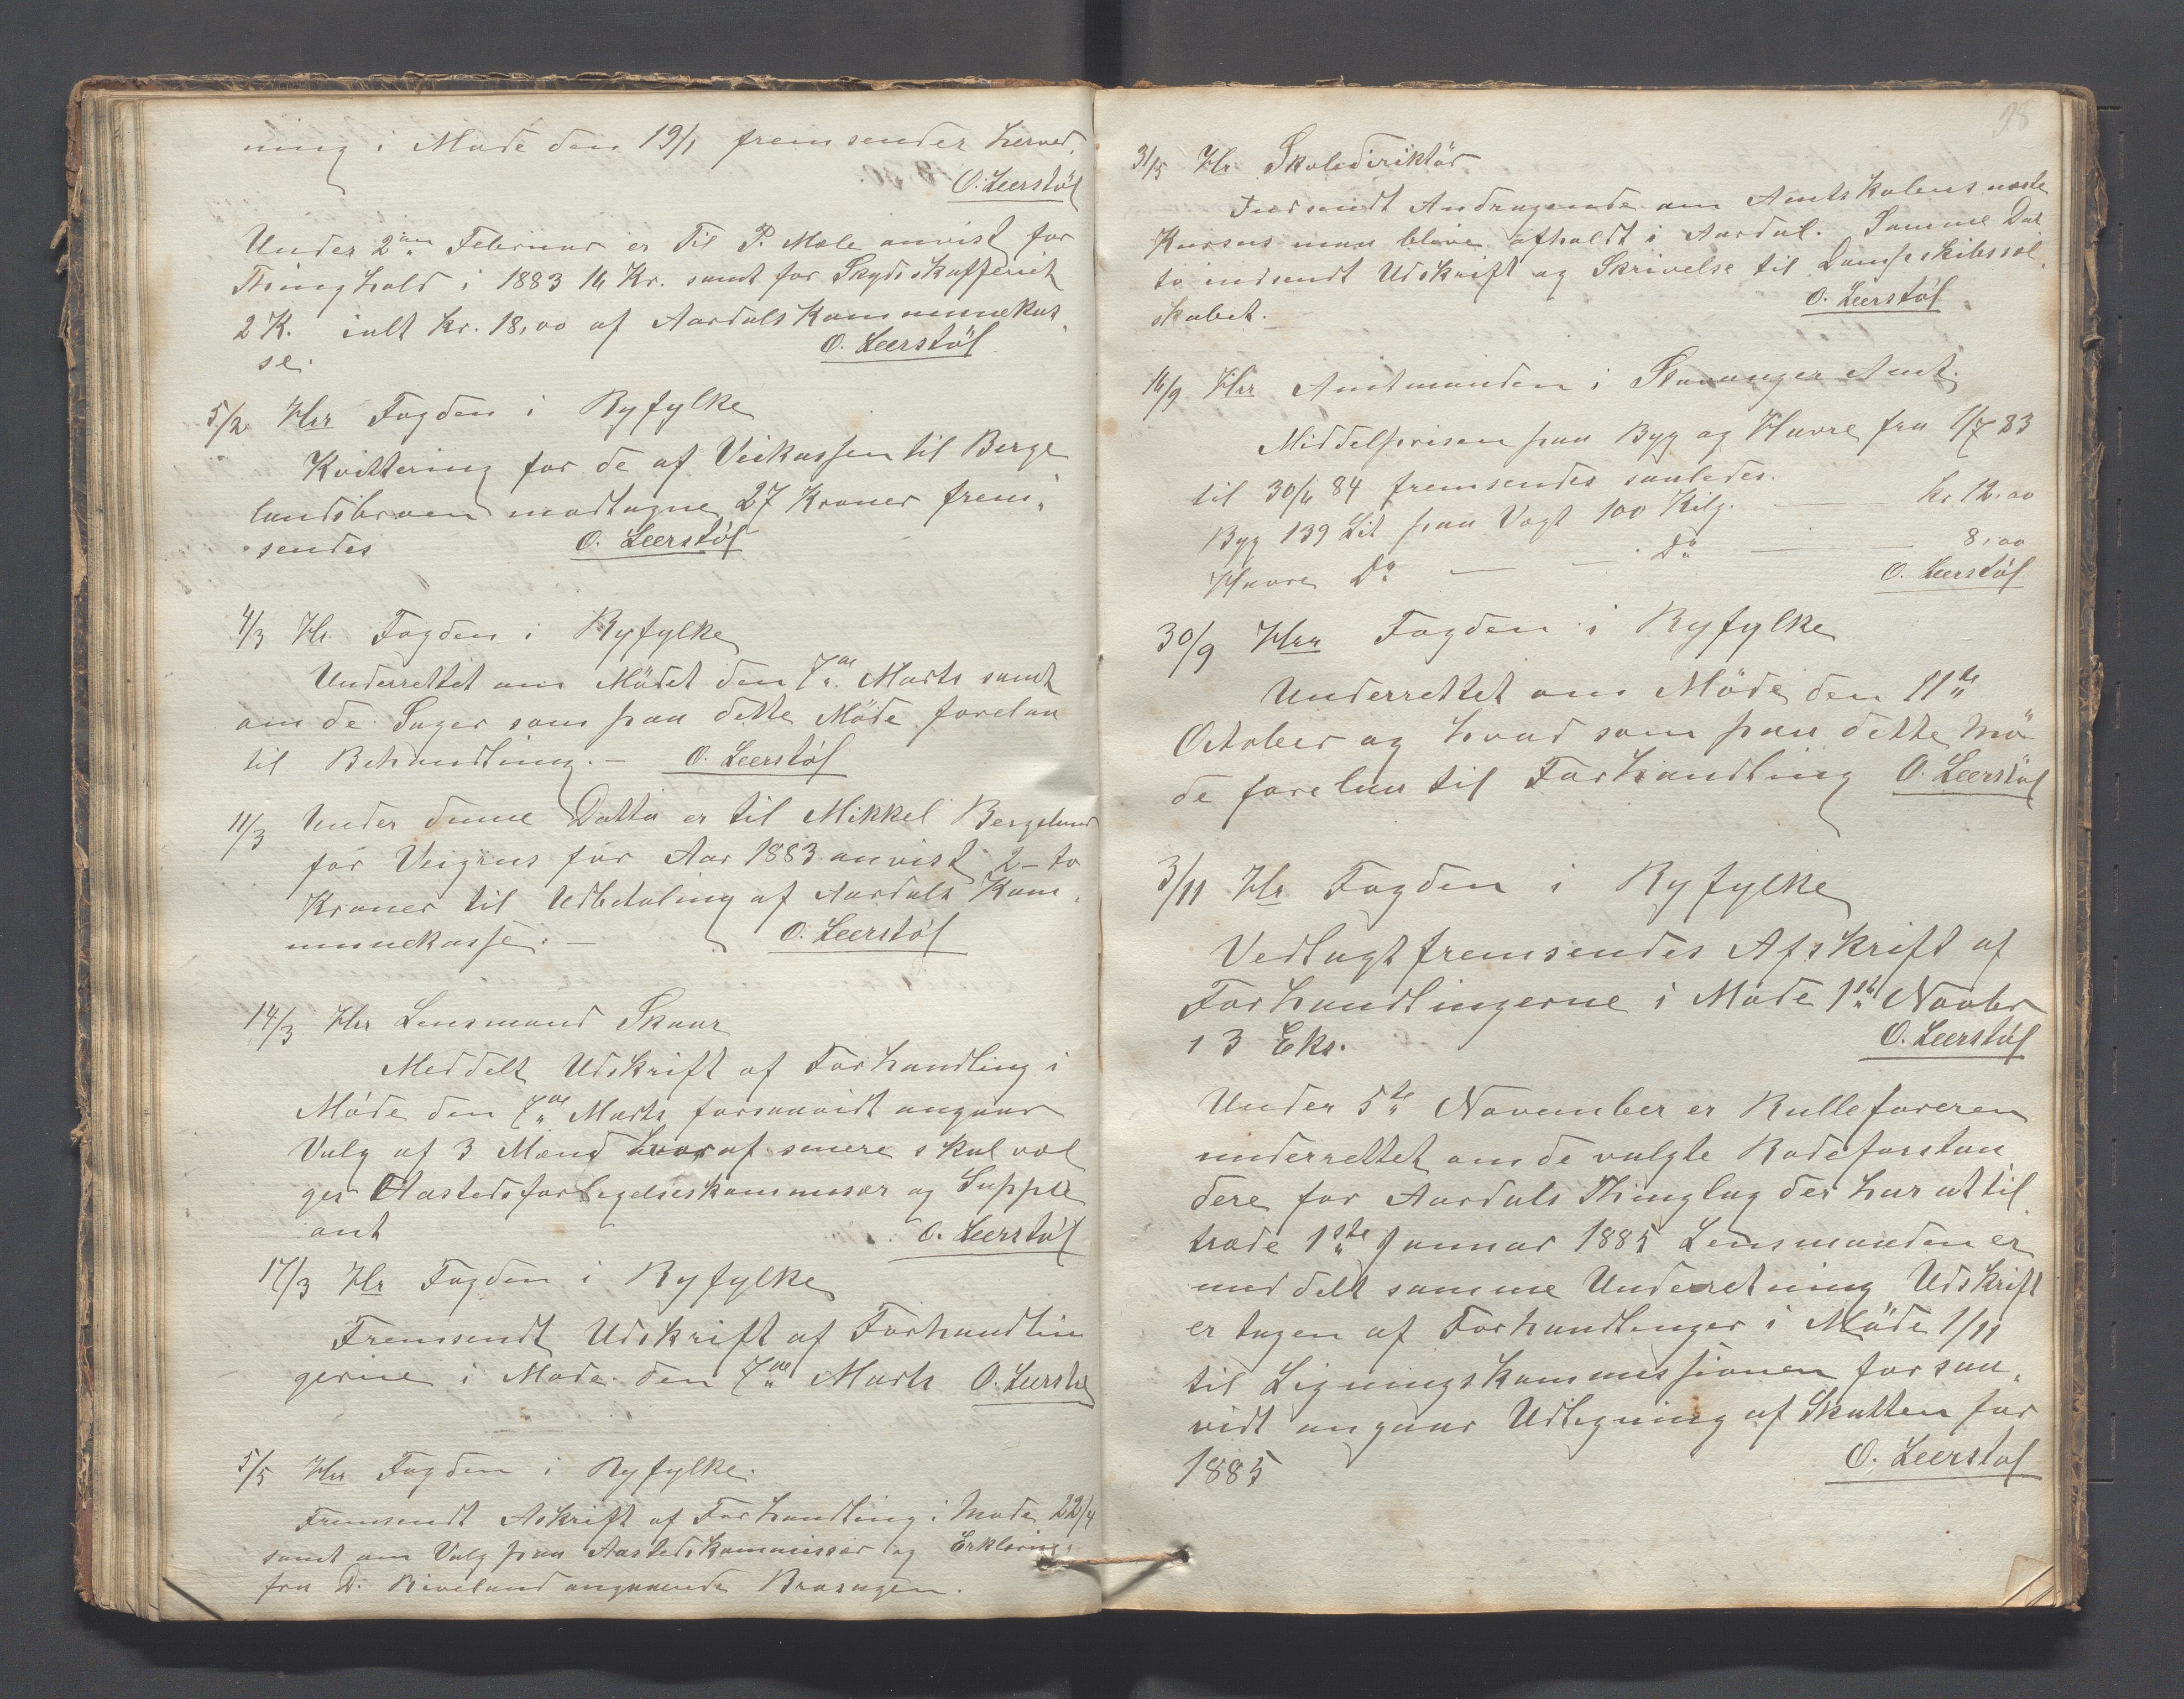 ning i Møde den 19/1 fremsender herved.
O. Leerstøl
Under 2den Februar er til P. Mæle anvist for
Thinghold i 1883 16 Kr. samt for Skydsskafferiet
2 K. ialt kr. 18,00 af Aardals Kommunekas
se.
O. Leerstøl
5/2 Hrr Fogden i Ryfylke
Kvittering for de af Veikassen til Berge
landsbroen modtagne 27 Kroner frem-
sendes
O. Leerstøl
4/3 Hr. Fogden i Ryfylke
Underrettet om Mödet den 7de Marts samt
om de Sager som paa dette Möde forelaa
til Behandling. – O. Leerstøl
11/3 Under denne Datto er til Mikkel Bergeland
for Veigrus for Aar 1883 anvist 2 – to
Kroner til Udbetaling af Aardals Kom
munekasse. –
O. Leerstøl
14/3 Hrr Lensmand Skaar
Meddelt Udskrift af Forhandling i
Møde den 7de Marts forsaavidt angaar
Valg af 3 Mænd hvoraf senere skal væl
ges Aastedsforligelseskommisær og Supple
ant
O. Leerstøl
17/3 Hr Fogden i Ryfylke
Fremsendt Udskrift af Forhandlin
gerne i Møde den 7de Marts O. Leerstø
5/5 Hrr Fogden i Ryfylke.
Fremsendt Afskrift af Forhandling i Møde 22/4
samt om Valg paa Aastedskommissær og Erklæring
fra D. Riveland angaaende Brosagen.
98
31/5 Hr Skolediriktör
Indsendt Andragende om Amtskolens næste
Kursus maa blive afholdt i Aardal. Samme Dat
to indsendt Udskrift og Skrivelse til Dampskibssel
skabet.
O. Leerstøl
16/9 Hrr Amtmanden i Stavanger Amt.
Middelprisen paa Byg og Havre fra 1/7 83
til 30/6 84 fremsendes saaledes.
Byg 139 Lit paa Vægt 100 Kilg. — kr 12,00
Havre Do — — Do — — 8,00
O. Leerstøl
30/9 Hrr Fogden i Ryfylke
Underrettet om Möde den 11te
October og hvad som paa dette Mö
de forelaa til Forhandling O. Leerstøl
3/11 Hr Fogden i Ryfylke
Vedlagt fremsendes Afskrift af
Forhandlingerne i Møde 1ste Novbr
i 3 Eks.
O. Leerstøl
Under 5te November er Rulleføreren
underrettet om de valgte Rodeforstan
dere for Aardals Thinglag der har at til
træde 1ste Januar 1885 Lensmanden er
meddelt samme Underretning Udskrift
er tagen af Forhandlinger i Möde 1/11
til Ligningskommissionen forsaa
vidt angaar Udligning af Skatten for
1885
O. Leerstøl